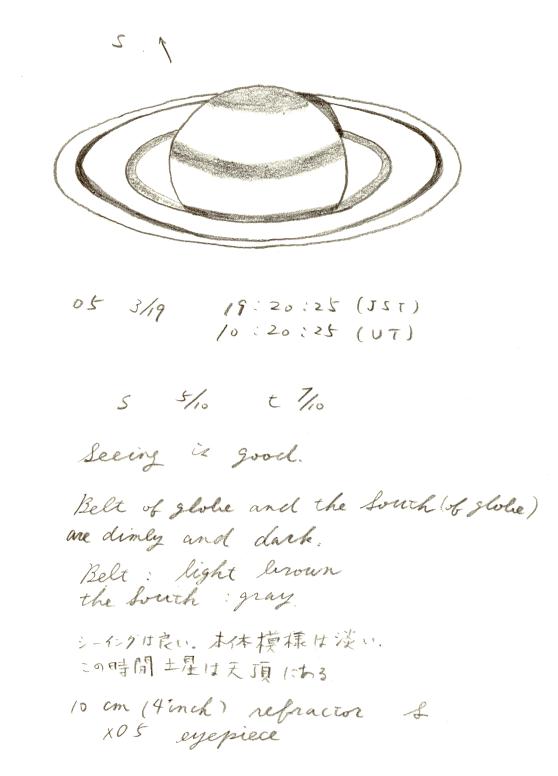 S
05 3/19 19:20:25 (JST)
10:20:25 (UT)
S 5/10 t 7/10
Seeing is good.
Belt of globe and the South (of globe)
are dimly and dark.
Belt : light brown
the South : gray
シーイングは良い。本体模様は淡い.
この時間 土星は天頂にある
10 cm (4 inch) refractor
eyepiece